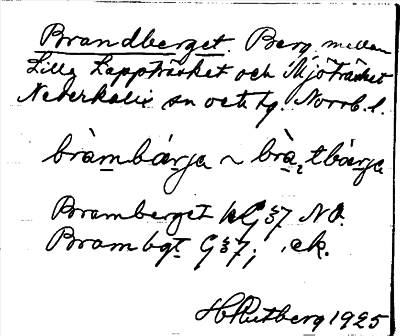 Brandberget. Berg mellan
Lilla Lappträsket och Mjöträsket
Nederkalix sn och tg. Norrb. l.
bràmbárja ~ brà, tbárja
Bramberget kG 37 NO.
Brambgt G 37; ek.
H Rutberg 1925